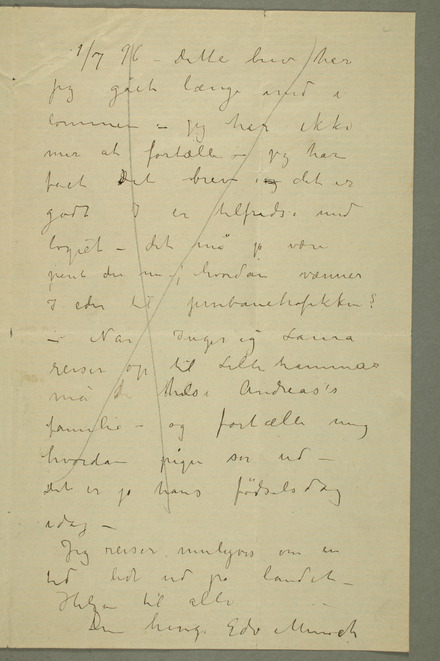 1/7 96 – Dette brev har
jeg gået længe med i
lommen – jeg har ikke
mer at fortælle – jeg har
fået dit brev og det er
godt I er tilfreds med
logiet – det må jo være
pent der nu – hvordan vænner
I eder til jernbanetrafikken?
– Når Inger og Laura
reiser op til Lillehammer
må de hilse Andreas's
familie – og fortælle mig
hvordan pigen ser ud –
Det er jo hans fødselsdag
idag –
Jeg reiser muligvis om en
tid lidt ud på landet –
Hilsen til alle
Din heng. Edv Munch